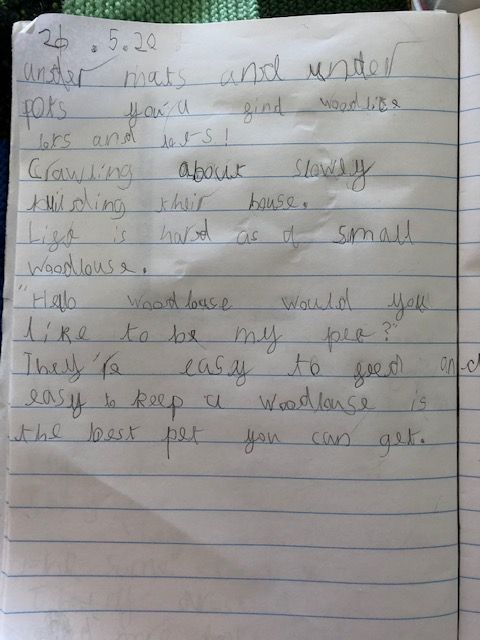 26.5.20
under mats and under
pots you'd find woodlice
lots and lots!
Crawling about slowly
building their house.
Life is hard as a small
woodlouse.
"Hello woodlouse would you
like to be my pet?"
They're easy to feed and
easy to keep a woodlouse is
the best pet you can get.